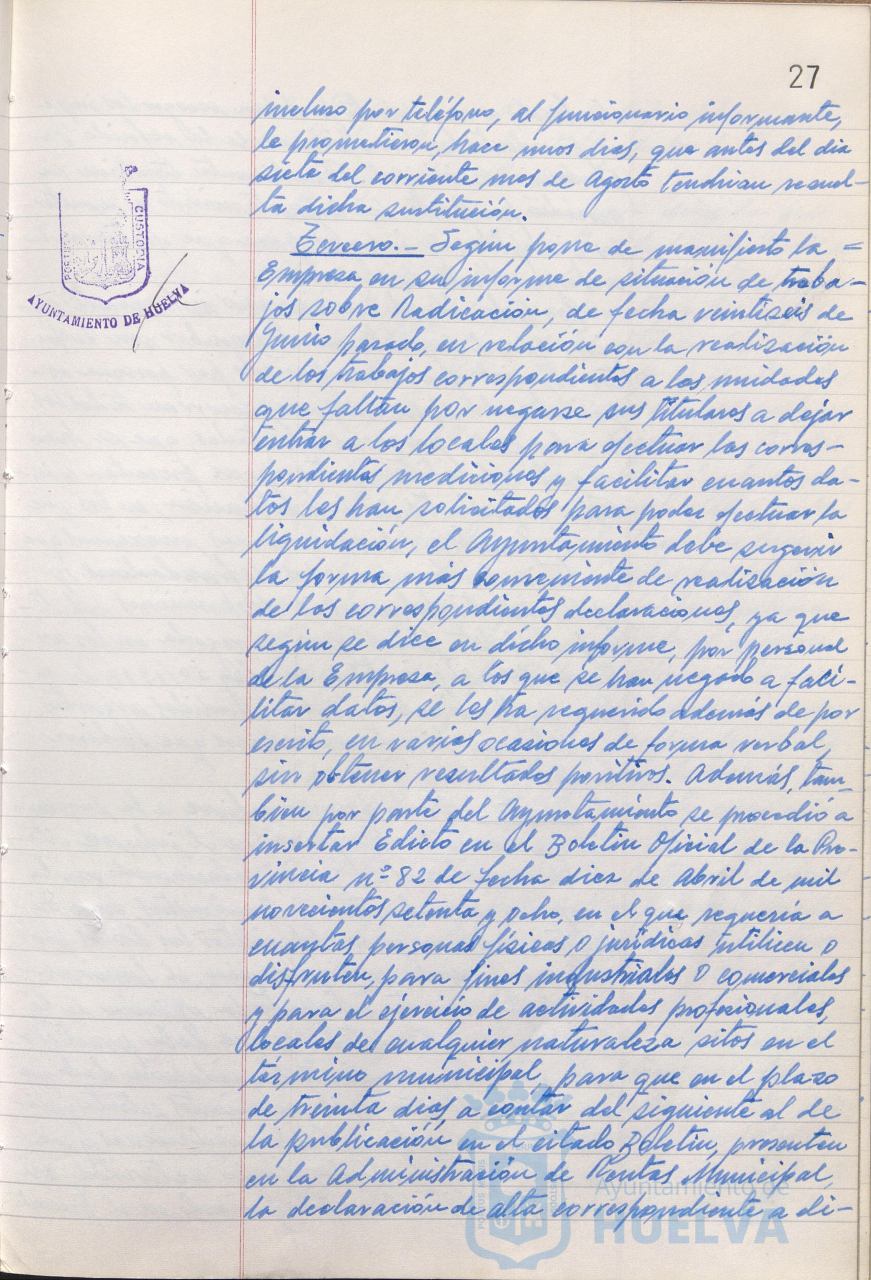 27
incluso por teléfono, al funcionario informante,
le prometieron, hace unos dias, que antes del dia
siete del corriente mes de Agosto tendrian resuel-
ta dicha sustitución.
Tercero.- Según pone de manifiesto la =
Empresa en su informe de situación de traba-
jos sobre Radicación, de fecha veintiseis de
Junio pasado, en relación con la realización
de los trabajos correspondientes a las unidades
que faltan por negarse sus titulares a dejar
entrar a los locales para efectuar las corres-
pondientes mediciones y facilitar cuantos da-
tos les han solicitados para poder efectuar la
liquidación, el Ayuntamiento debe sugerir
la forma más conveniente de realización
de las correspondientes declaraciones, ya que
según se dice en dicho informe, por personal
de la Empresa, a los que se han negado a faci-
litar datos, se les ha requerido además de por
escrito, en varias ocasiones de forma verbal,
sin obtener resultados positivos. Además, tam-
bien por parte del Ayuntamiento se procedió a
insertar Edicto en el Boletin Oficial de la Pro-
vincia nº 82 de fecha diez de Abril de mil
novecientos setenta y ocho, en el que requeria a
cuantas personas físicas o juridicas utilicen o
disfruten, para fines industriales o comerciales
y para el ejercicio de actividades profesionales,
locales de cualquier naturaleza sitos en el
término municipal, para que en el plazo
de treinta dias, a contar del siguiente al de
la publicación en el citado Boletin, presenten
en la Administración de Rentas Municipal,
la declaración de alta correspondiente a di-
CUSTODIA
AYUNTAMIENTO DE HUELVA
Ayuntamiento de
HUELVA